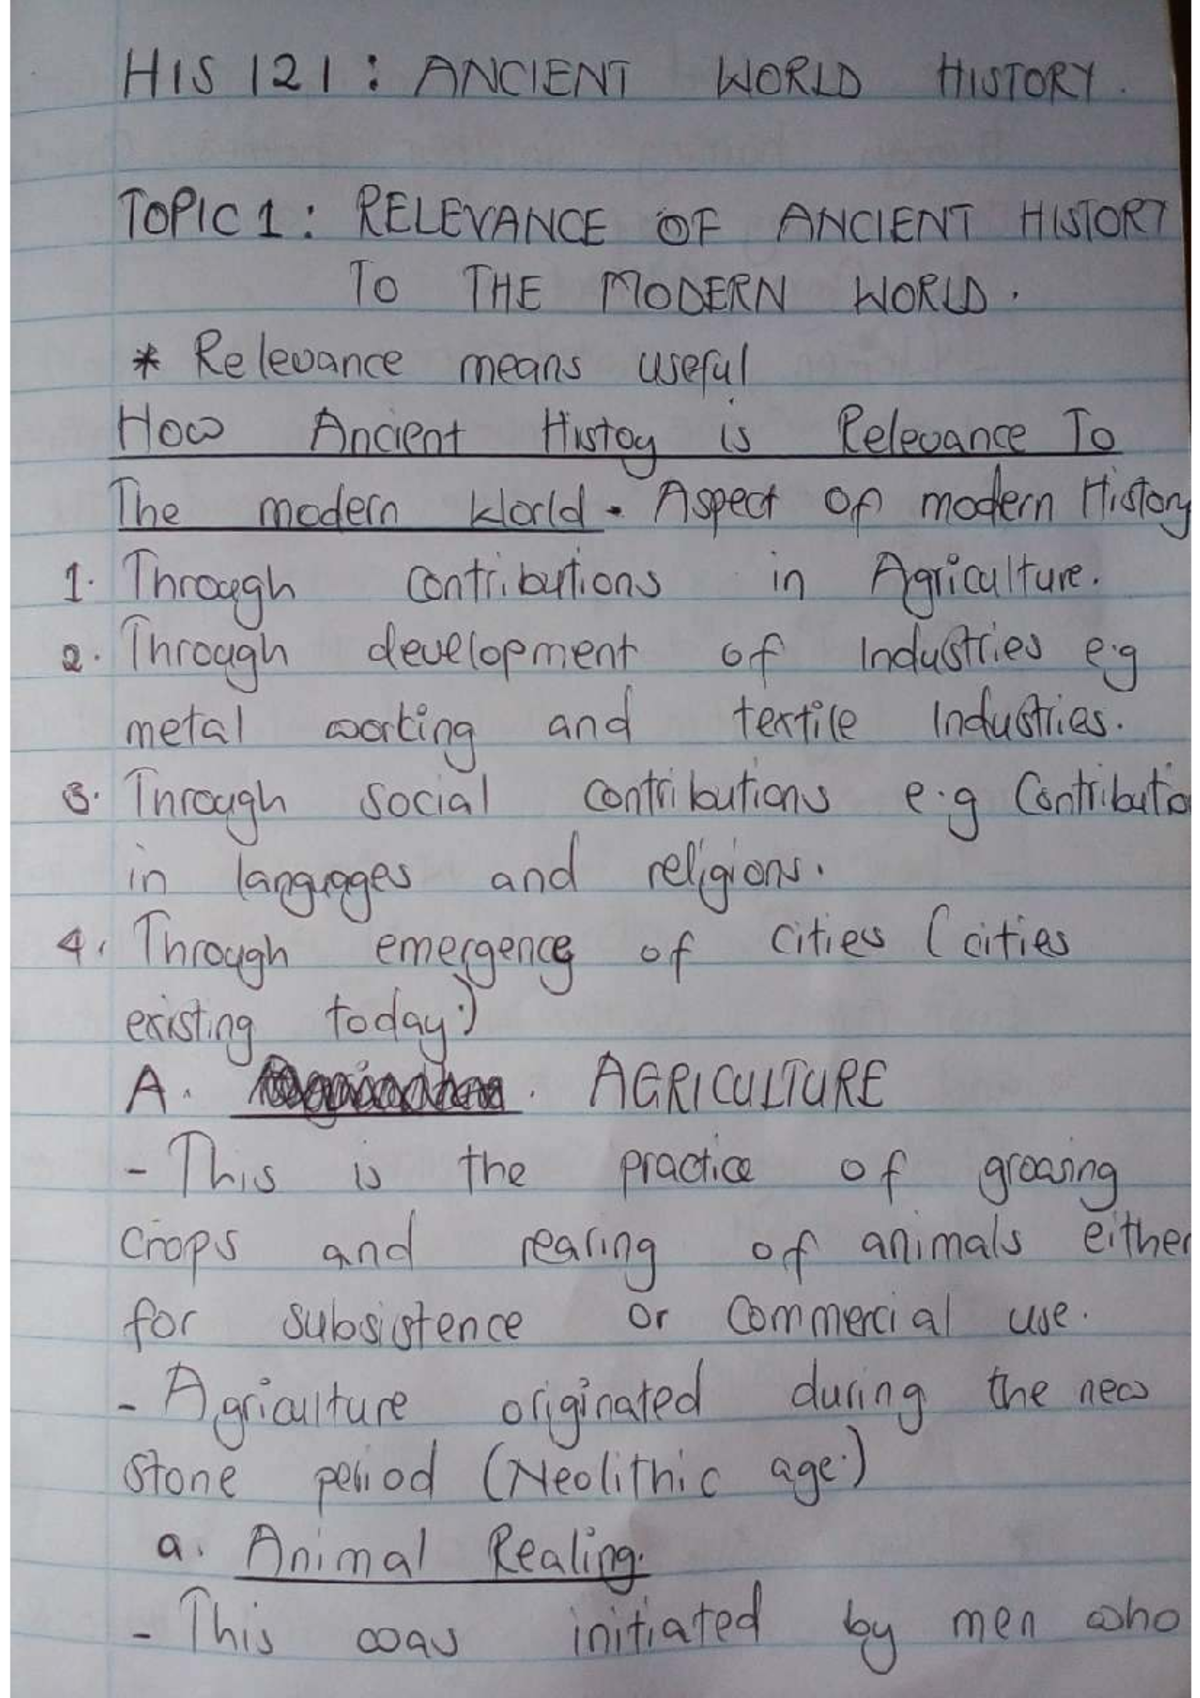 HIS 121: ANCIENT WORLD HISTORY.
TOPIC 1: RELEVANCE OF ANCIENT HISTORY
TO THE MODERN WORLD.
* Relevance means useful
How Ancient Histoy is Relevance To
The modern World. Aspect of modern History
1. Through contributions in Agriculture.
2. Through development of Industries e.g
metal working and textile Industries.
3. Through social contributions e.g Contributio
in languages and religions.
4. Through emergence of cities (cities
existing today.)
A. AGRICULTURE
- This is the practice of growing
crops and rearing of animals either
for subsistence or commercial use.
- Agriculture originated during the new
stone period (Neolithic age.)
a. Animal Rearing.
- This was initiated by men who